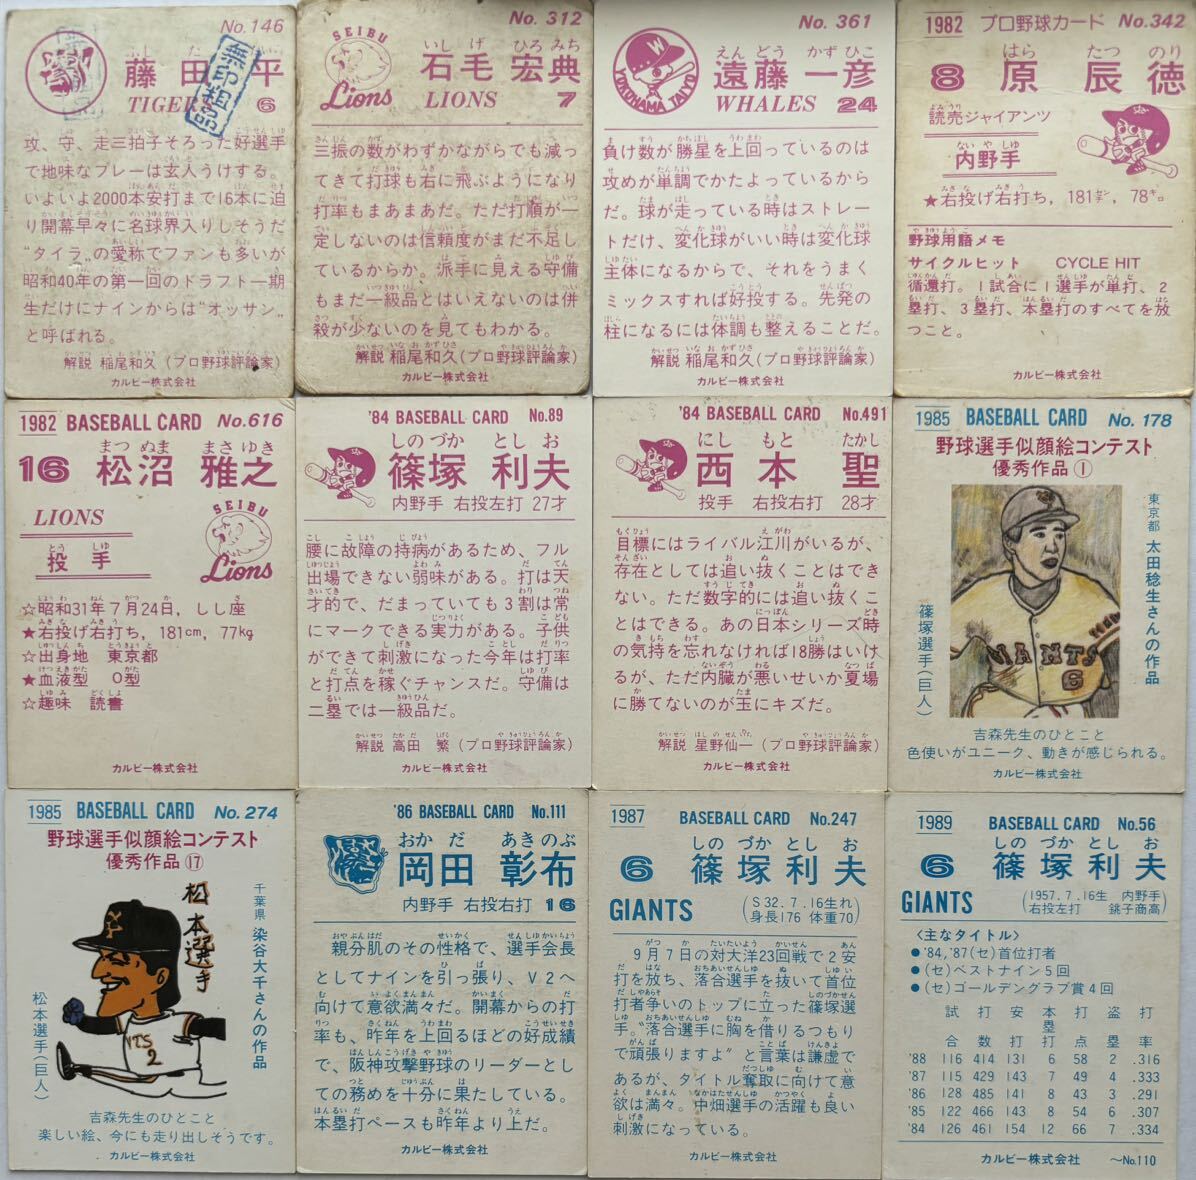 No.146
藤田 平
ふじ た
無印粗品
TIGERS 6
攻、守、走三拍子そろった好選手
で地味なプレーは玄人うけする。
いよいよ2000本安打まで16本に迫
り開幕早々に名球界入りしそうだ
"タイラ"の愛称でファンも多いが
昭和40年の第一回のドラフト一期
生だけにナインからは"オッサン"
と呼ばれる。
解説 稲尾和久(プロ野球評論家)
カルビー株式会社
No. 312
SEIBU Lions
いし げ ひろ みち
石毛 宏典
LIONS 7
三振の数がわずかながらでも減っ
てきて打球も右に飛ぶようになり
打率もまあまあだ。ただ打順が一
定しないのは信頼度がまだ不足し
ているからか。派手に見える守備
もまだ一級品とはいえないのは併
殺が少ないのを見てもわかる。
解説 稲尾和久(プロ野球評論家)
カルビー株式会社
No. 361
W YOKOHAMA TAIYO
えん どう かず ひこ
遠藤 一彦
WHALES 24
負け数が勝星を上回っているのは
攻めが単調でかたよっているから
だ。球が走っている時はストレー
トだけ、変化球がいい時は変化球
主体になるからで、それをうまく
ミックスすれば好投する。先発の
柱になるには体調も整えることだ。
解説 稲尾和久(プロ野球評論家)
カルビー株式会社
1982 プロ野球カード No.342
はら たつ のり
8 原 辰徳
よみ うり
読売ジャイアンツ
ない や しゅ
内野手
★右投げ右打ち, 181センチ, 78キロ
野球用語メモ
サイクルヒット CYCLE HIT
循還打。1試合に1選手が単打、2
塁打、3塁打、本塁打のすべてを放
つこと。
カルビー株式会社
1982 BASEBALL CARD No.616
まつ ぬま まさ ゆき
16 松沼 雅之
LIONS
SEIBU Lions
とう しゅ
投手
☆昭和31年7月24日, しし座
★右投げ右打ち, 181cm, 77kg
☆出身地 東京都
★血液型 O型
☆趣味 読書
カルビー株式会社
'84 BASEBALL CARD No.89
しの づか とし お
篠塚 利夫
内野手 右投左打 27才
腰に故障の持病があるため、フル
出場できない弱味がある。打は天
才的で、だまっていても3割は常
にマークできる実力がある。子供
ができて刺激になった今年は打率
と打点を稼ぐチャンスだ。守備は
二塁では一級品だ。
解説 高田 繁(プロ野球評論家)
カルビー株式会社
'84 BASEBALL CARD No.491
にし もと たかし
西本 聖
投手 右投右打 28才
目標にはライバル江川がいるが、
存在としては追い抜くことはでき
ない。ただ数字的には追い抜くこ
とはできる。あの日本シリーズ時
の気持を忘れなければ18勝はいけ
るが、ただ内臓が悪いせいか夏場
に勝てないのが玉にキズだ。
解説 星野仙一(プロ野球評論家)
カルビー株式会社
1985 BASEBALL CARD No. 178
野球選手似顔絵コンテスト
優秀作品①
東京都 太田稔生さんの作品
篠塚選手(巨人)
GIANTS
6
吉森先生のひとこと
色使いがユニーク、動きが感じられる。
カルビー株式会社
1985 BASEBALL CARD No. 274
野球選手似顔絵コンテスト
優秀作品⑰
松本選手
千葉県 染谷大千さんの作品
松本選手(巨人)
NTS
2
吉森先生のひとこと
楽しい絵、今にも走り出しそうです。
カルビー株式会社
'86 BASEBALL CARD No.111
おか だ あきのぶ
岡田 彰布
内野手 右投右打 16
親分肌のその性格で、選手会長
としてナインを引っ張り、V2へ
向けて意欲満々だ。開幕からの打
率も、昨年を上回るほどの好成績
で、阪神攻撃野球のリーダーとし
ての務めを十分に果たしている。
本塁打ペースも昨年より上だ。
カルビー株式会社
1987 BASEBALL CARD No.247
しの づか とし お
6 篠塚利夫
GIANTS
(S32.7.16生れ
身長176 体重70)
9月7日の対大洋23回戦で2安
打を放ち、落合選手を抜いて首位
打者争いのトップに立った篠塚選
手。"落合選手に胸を借りるつもり
で頑張りますよ"と言葉は謙虚で
あるが、タイトル奪取に向けて意
欲は満々。中畑選手の活躍も良い
刺激になっている。
カルビー株式会社
1989 BASEBALL CARD No.56
しの づか とし お
6 篠塚利夫
GIANTS
(1957.7.16生 内野手
右投左打 銚子商高)
〈主なタイトル〉
●'84,'87(セ)首位打者
●(セ)ベストナイン5回
●(セ)ゴールデングラブ賞4回
試合 打数 安打 本塁打 打点 盗塁 打率
'88 116 414 131 6 58 2 .316
'87 115 429 143 7 49 4 .333
'86 128 485 141 8 43 3 .291
'85 122 466 143 8 54 6 .307
'84 126 461 154 12 66 7 .334
カルビー株式会社 〜No.110